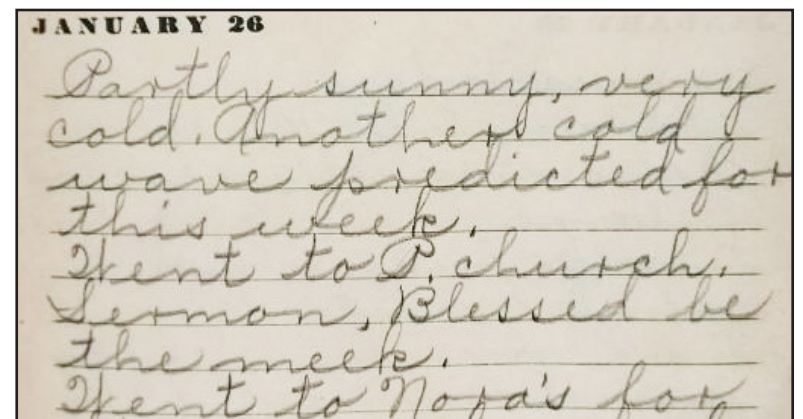 JANUARY 26
Partly sunny, very
cold. Another cold
wave predicted for
this week.
Went to P. church.
Sermon, Blessed be
the meek.
Went to Nora's for